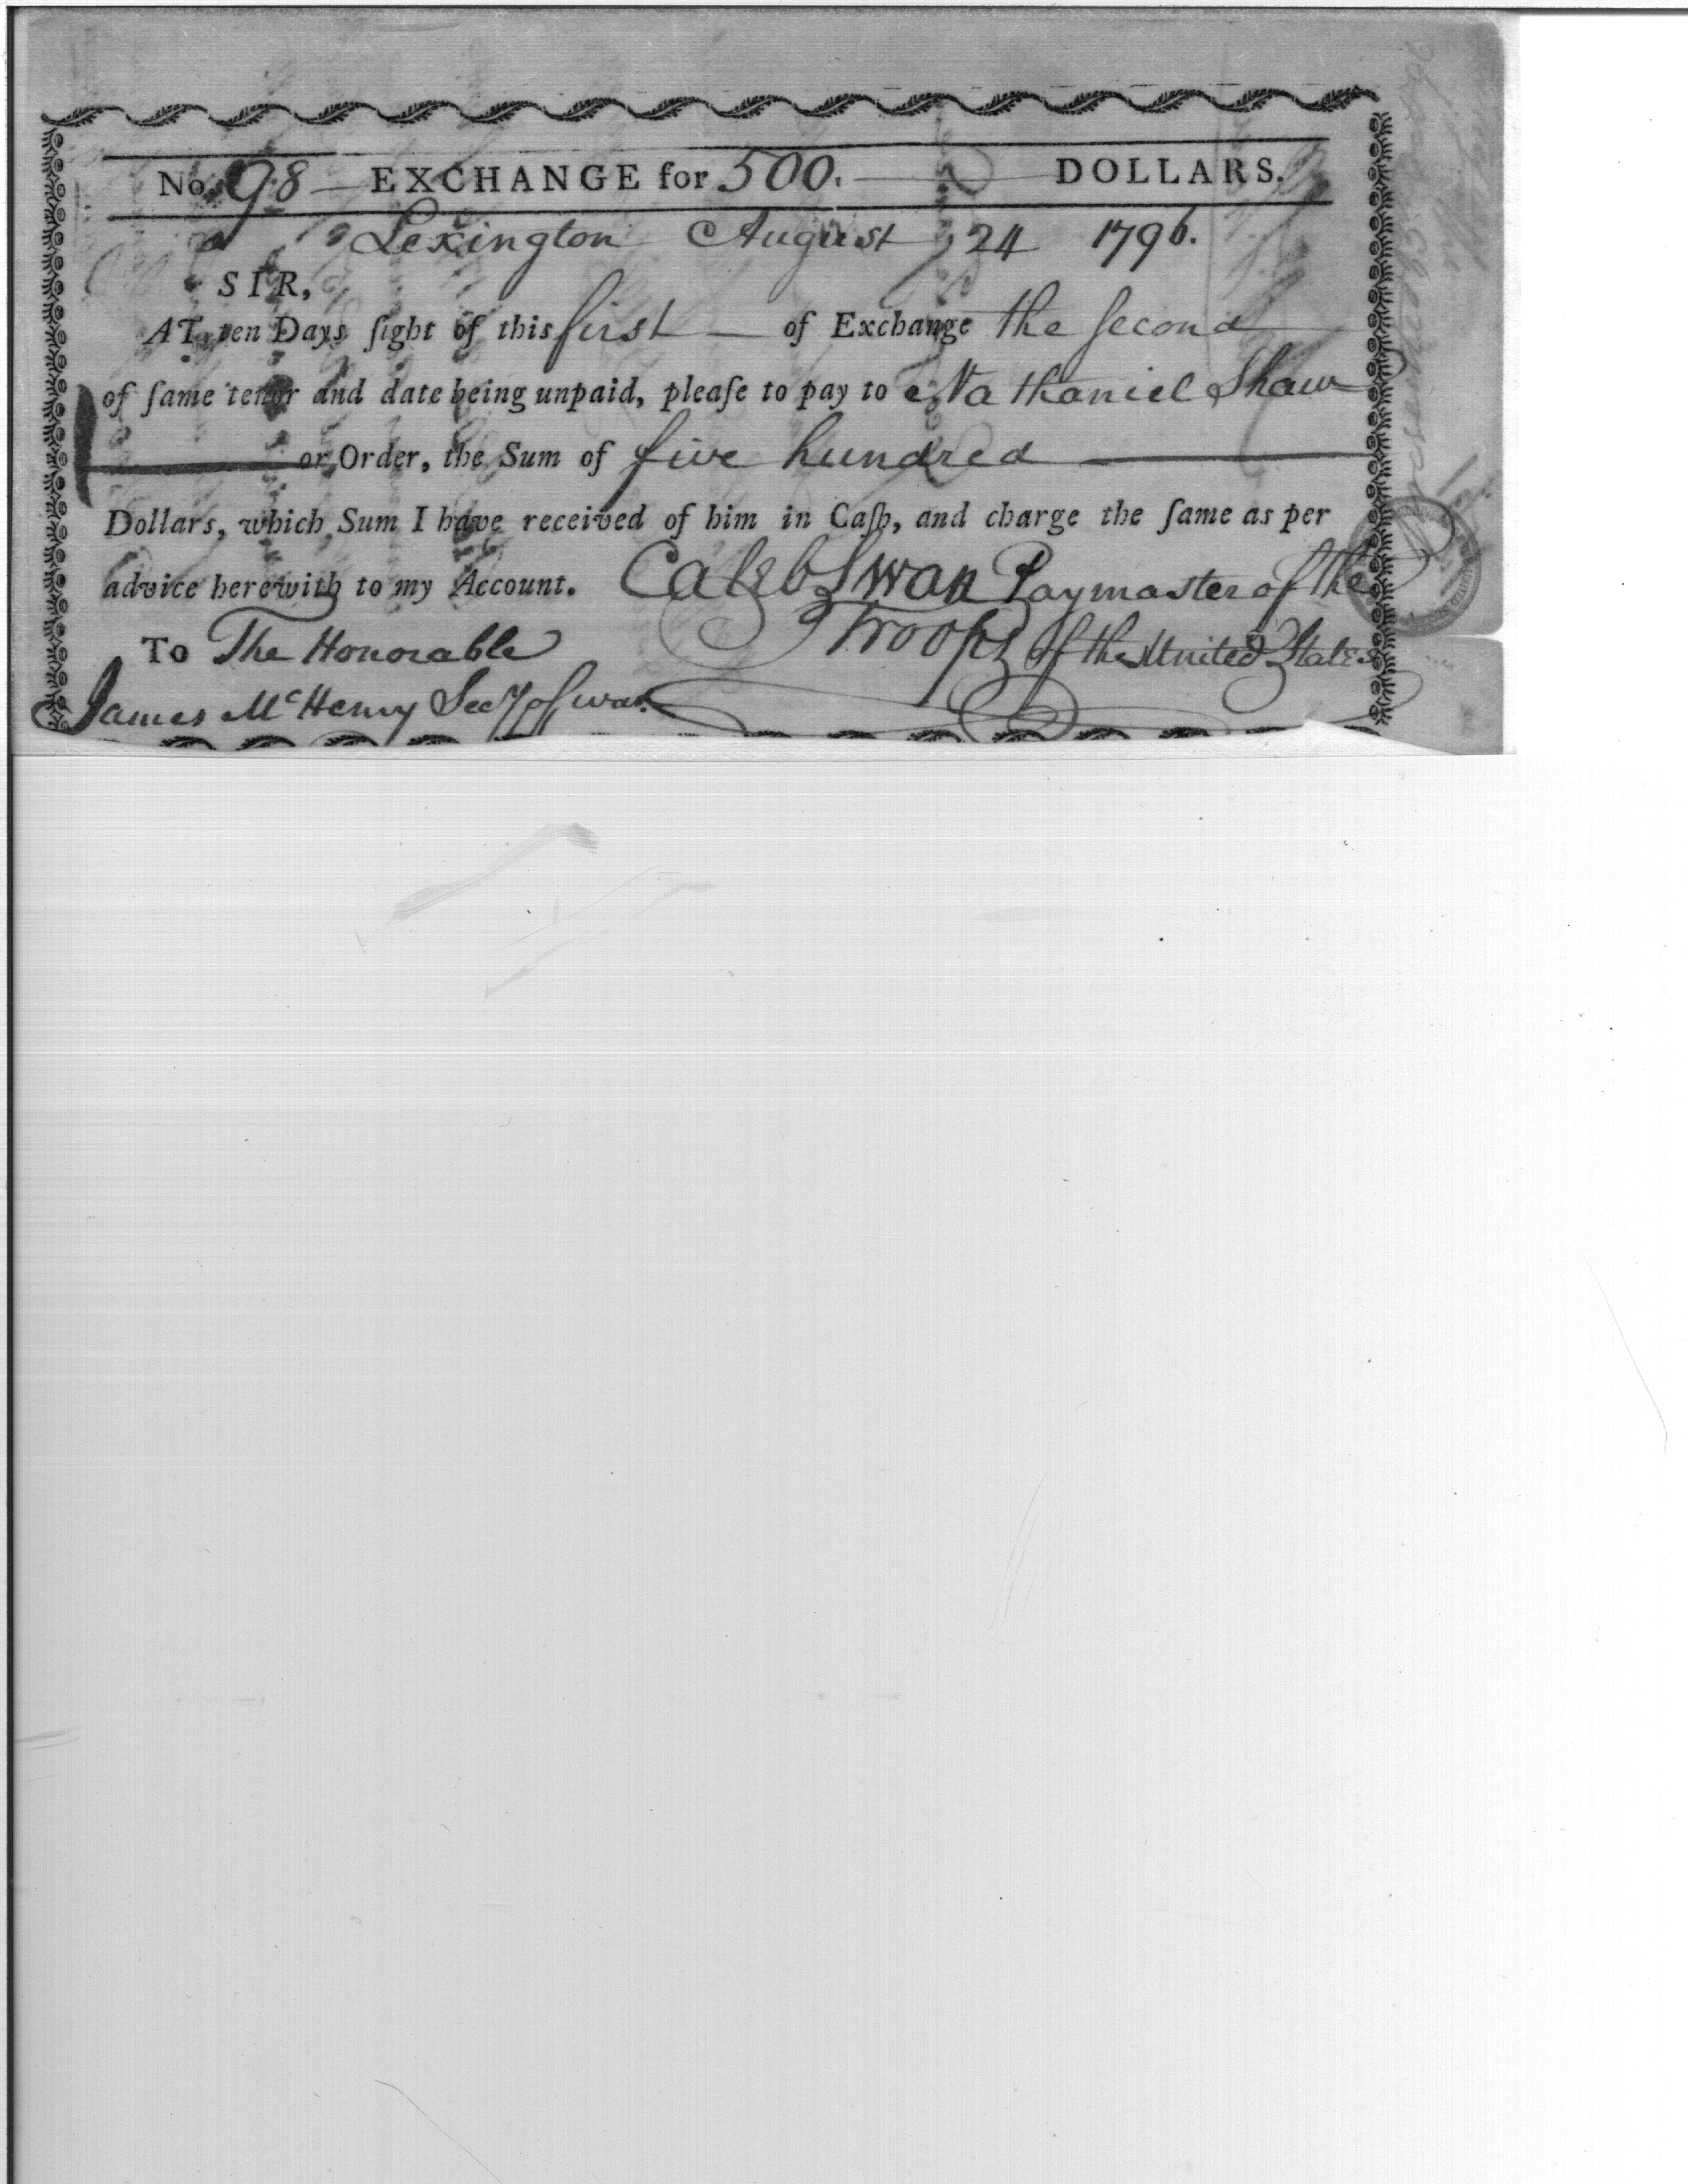 No. 98 EXCHANGE for 500. DOLLARS.
Lexington August 24 1796.
SIR,
AT ten Days ſight of this first of Exchange the ſecond
of ſame tenor and date being unpaid, pleaſe to pay to Nathaniel Shaw
or Order, the Sum of five hundred
Dollars, which Sum I have received of him in Caſh, and charge the ſame as per
advice herewith to my Account. Caleb Swan Paymaster of the
Troops of the United States
To The Honorable
James McHenry Secy of war.